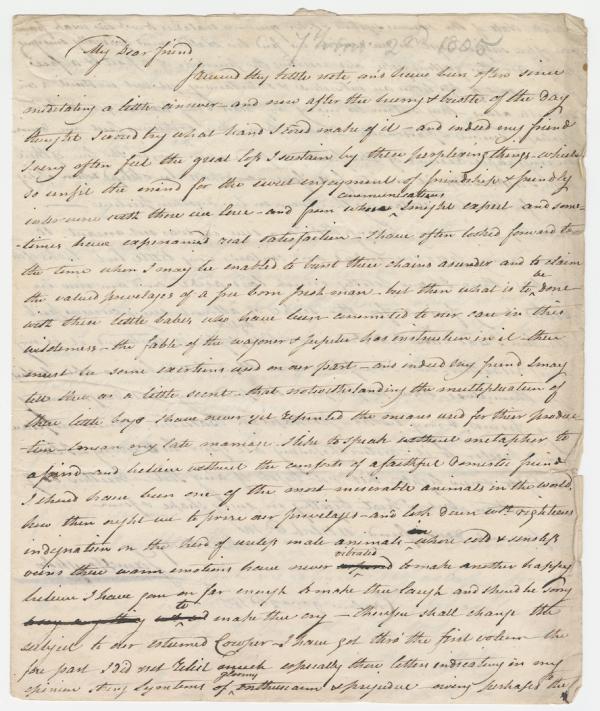 My Dear friend 7th Mo 2nd 1805
I received thy little note and have been often since
meditating a little answer – and now after the hurry & bustle of the day
thought I would try what hand I could make of it – and indeed my friend
I very often feel the great loss I sustain by these perplexing things which
so unfit the mind for the sweet enjoyment of friendship & friendly
communications
intercourse with those we love – and from whom I might expect and some
-times have experienced real satisfaction – I have often looked forward to
the time when I may be enabled to burst these chains asunder and to claim
the valued priveleges of a free born Irish man – but then what is to be done
with these little babes who have been committed to our care in this
wilderness – the fable of the wagoner & Jupiter has instruction in it – there
must be some exertions used on our part – and indeed my friend I may
tell thee as a little secret – that notwithstanding the multiplication of
these little boys I have never yet repented the means used for their produc
tion – I mean my late marriage I like to speak without metaphor to
a friend and believe without the comforts of a faithful domestic friend
I should have been one of the most miserable animals in the world.
how then ought we to prize our privelages – and look down wth righteous
indignation on the herd of useless male animals – in whose cold & senseless
veins these warm emotions have never vibrated to make another happy
believe I have gone on far enough to make thee laugh and should be sorry
to make thee cry – therefore shall change the
subject to our esteemed Cowper – I have got thro' the first volum – the
fore part I did not relish much especially those letters indicating in my
opinion strong symtems of gloomy enthusiasm & prejudice owing perhaps to the